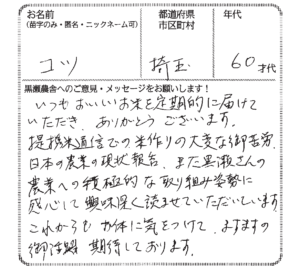 お名前
(苗字のみ・匿名・ニックネーム可)
都道府県
市区町村
年代
コツ
埼玉
60才代
黒瀬農舎へのご意見・メッセージをお願いします!
いつもおいしいお米を定期的に届けて
いただき、ありがとうございます。
提携米通信での米作りの大変な御苦労、
日本の農業の現状報告、また黒瀬さんの
農業への積極的な取り組み姿勢に
感心して興味深く読ませていただいています。
これからもお体に気をつけて、ますますの
御活躍 期待しております。